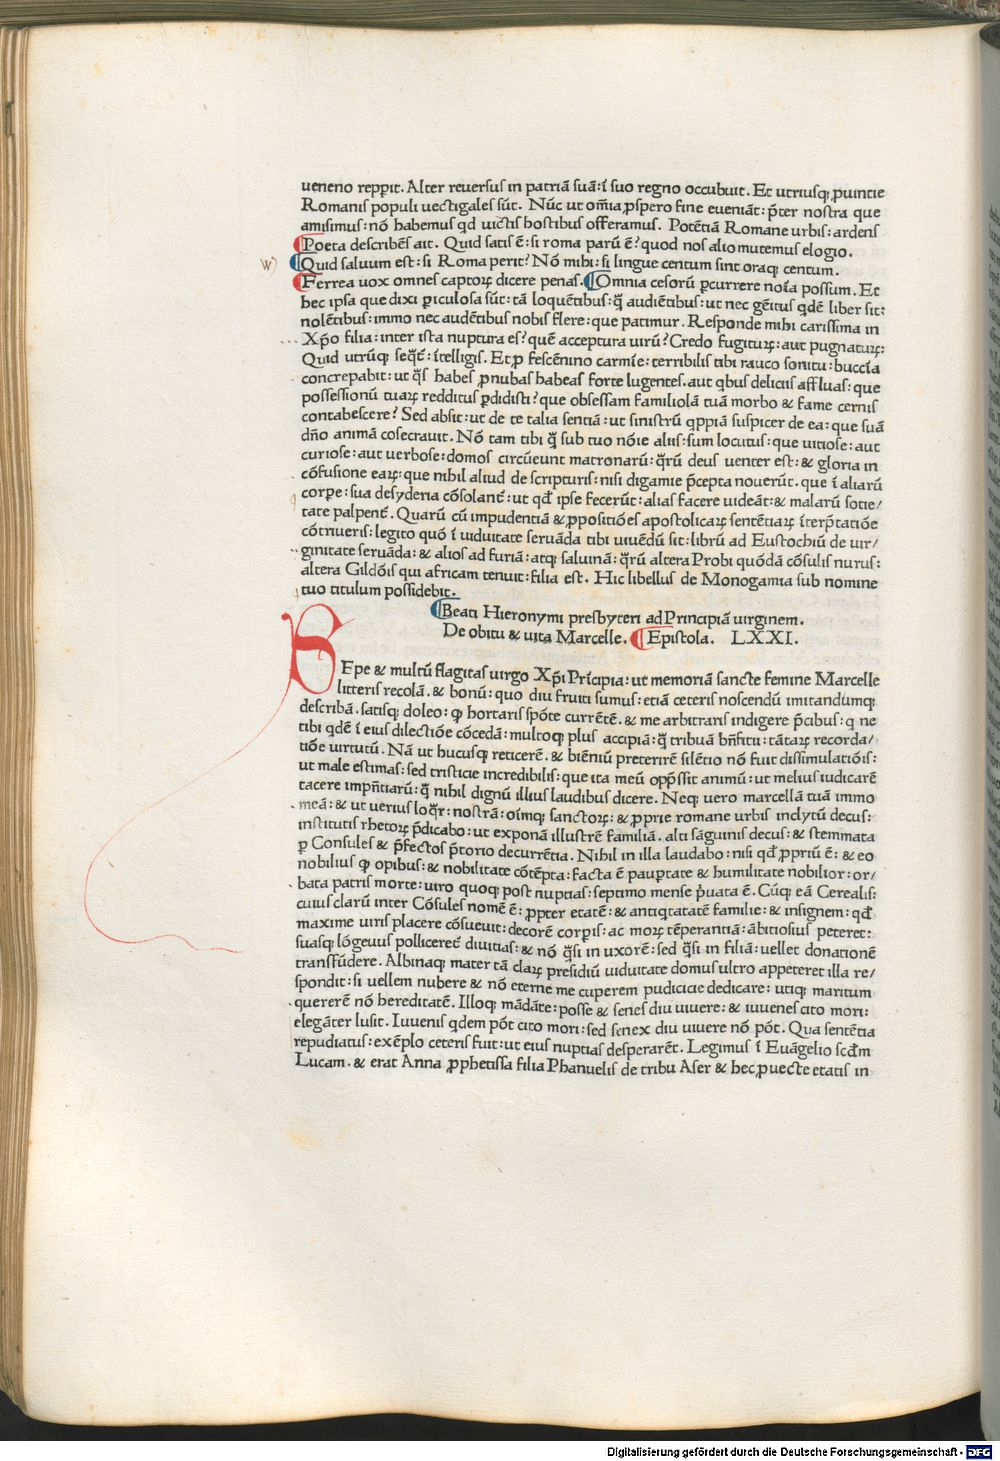 ueneno repꝑit. Alter reuersus in patriā suā: ī suo regno occubuit. Et utriusqꝫ ꝓuincie
Romanis populi uectigales sūt. Nūc ut om̄ia ꝓspero fine eueniāt: p̄ter nostra que
amisimus: nō habemus qd uictis hostibus offeramus. Potētiā Romane urbis: ardens
Poeta describēs ait. Quid satis ē: si roma parū ē? quod nos alio mutemus elogio.
w Quid saluum est: si Roma perit? Nō mihi: si lingue centum sint oraqꝫ centum.
Ferrea uox omnes captoꝝ dicere penas. Omnia cesorū ꝑcurrere noīa possum. Et
hec ipsa que dixi ꝑiculosa sūt: tā loquētibus: q̄ audiētibus: ut nec gēitus qdē liber sit:
nolētibus: immo nec audētibus nobis flere: que patimur. Responde mihi carissima in
Xp̄o filia: inter ista nuptura es? quē acceptura uirū? Credo fugituꝝ: aut pugnatuꝝ:
Quid utrūqꝫ seq̄t̄: ītelligis. Et ꝓ fescēnino carmīe: terribilis tibi rauco sonitu: buccīa
concrepabit: ut q̄s habes ꝓnubas habeas forte lugentes. aut qbus deliciis affluas: que
possessionū tuaꝝ redditus ꝑdidisti? que obsessam familiolā tuā morbo & fame cernis
contabescere? Sed absit: ut de te talia sentiā: ut sinistrū qppiā suspicer de ea: que suā
dn̄o animā cōsecrauit. Nō tam tibi q̄ sub tuo nōie aliis: sum locutus: que uitiose: aut
curiose: aut uerbose: domos circūeunt matronarū: q̄rū deus uenter est: & gloria in
cōfusione eaꝝ: que nihil aliud de scripturis: nisi digamie p̄cepta nouerūt. que ī aliarū
corꝑe: sua desyderia cōsolant̄: ut qd̄ ipse fecerūt: alias facere uideāt: & malarū sotie/
tate palpent̄. Quarū cū impudentiā & ꝓpositiōes apostolicaꝝ sentētiaꝝ īterp̄tatiōe
cōtriueris: legito quō ī uiduitate seruāda tibi uiuēdū sit: librū ad Eustochiū de uir/
ginitate seruāda: & alios ad furiā: atqꝫ saluinā: q̄rū altera Probi quōdā cōsulis nurus:
altera Gildōis qui africam tenuit: filia est. Hic libellus de Monogamia sub nomine
tuo titulum possidebit.
Beati Hieronymi presbyteri ad Principiā uirginem.
De obitu & uita Marcelle. Epistola. LXXI.
SEpe & multū flagitas uirgo Xp̄i Prīcipia: ut memoriā sancte femine Marcelle
litteris recolā. & bonū: quo diu fruiti sumus: etiā ceteris noscendū imitandūmqꝫ
describā. satisqꝫ doleo: ꝙ hortaris spōte currētē. & me arbitraris indigere p̄cibus: q ne
tibi qdē ī eius dilectiōe cōcedā: multoqꝫ plus accipiā: q̄ tribuā bn̄fitii: tātaꝝ recorda/
tiōe uirtutū. Nā ut hucusqꝫ reticerē. & biēniū preterirē silētio nō fuit dissimulatiōis:
ut male estimas: sed tristicie incredibilis: que ita meū opp̄ssit animū: ut melius iudicarē
tacere imp̄n̄tiarū: q̄ nihil dignū illius laudibus dicere. Neqꝫ uero marcellā tuā immo
meā: & ut uerius loq̄r: nostrā: oīmqꝫ sanctoꝝ: & ꝓprie romane urbis inclytū decus:
institutis rhetoꝝ p̄dicabo: ut exponā illustrē familiā. alti sāguinis decus: & stemmata
ꝑ Consules & p̄fectos p̄torio decurrētia. Nihil in illa laudabo: nisi qd̄ ꝓpriū ē: & eo
nobilius ꝙ opibus: & nobilitate cōtēpta: facta ē pauꝑtate & humilitate nobilior: or/
bata patris morte: uiro quoqꝫ post nuptias: septimo mense p̄uata ē. Cūqꝫ eā Cerealis:
cuius clarū inter Cōsules nomē ē: ꝓpter etatē: & antiqtatē familie: & insignem: qd̄
maxime uiris placere cōsueuit: decorē corꝑis: ac moꝝ tēperantiā: ābitiosius peteret:
suasqꝫ lōgeuus polliceret̄ diuitias: & nō q̄si in uxorē: sed q̄si in filiā: uellet donationē
transfūdere. Albinaqꝫ mater tā claꝝ presidiū uiduitate domus ultro appeteret illa re/
spondit: si uellem nubere & nō eterne me cuperem pudicicie dedicare: utiqꝫ maritum
quererē nō hereditatē. Illoqꝫ mādāte: posse & senes diu uiuere: & iuuenes cito mori:
elegāter lusit. Iuuenis qdem pōt cito mori: sed senex diu uiuere nō pōt. Qua sentētia
repudiatus: exēplo ceteris fuit: ut eius nuptias desperarēt. Legimus ī Euāgelio scd̄m
Lucam. & erat Anna ꝓphetissa filia Phanuelis de tribu Aser & hec ꝓuecte etatis in
Digitalisierung gefördert durch die Deutsche Forschungsgemeinschaft - DFG